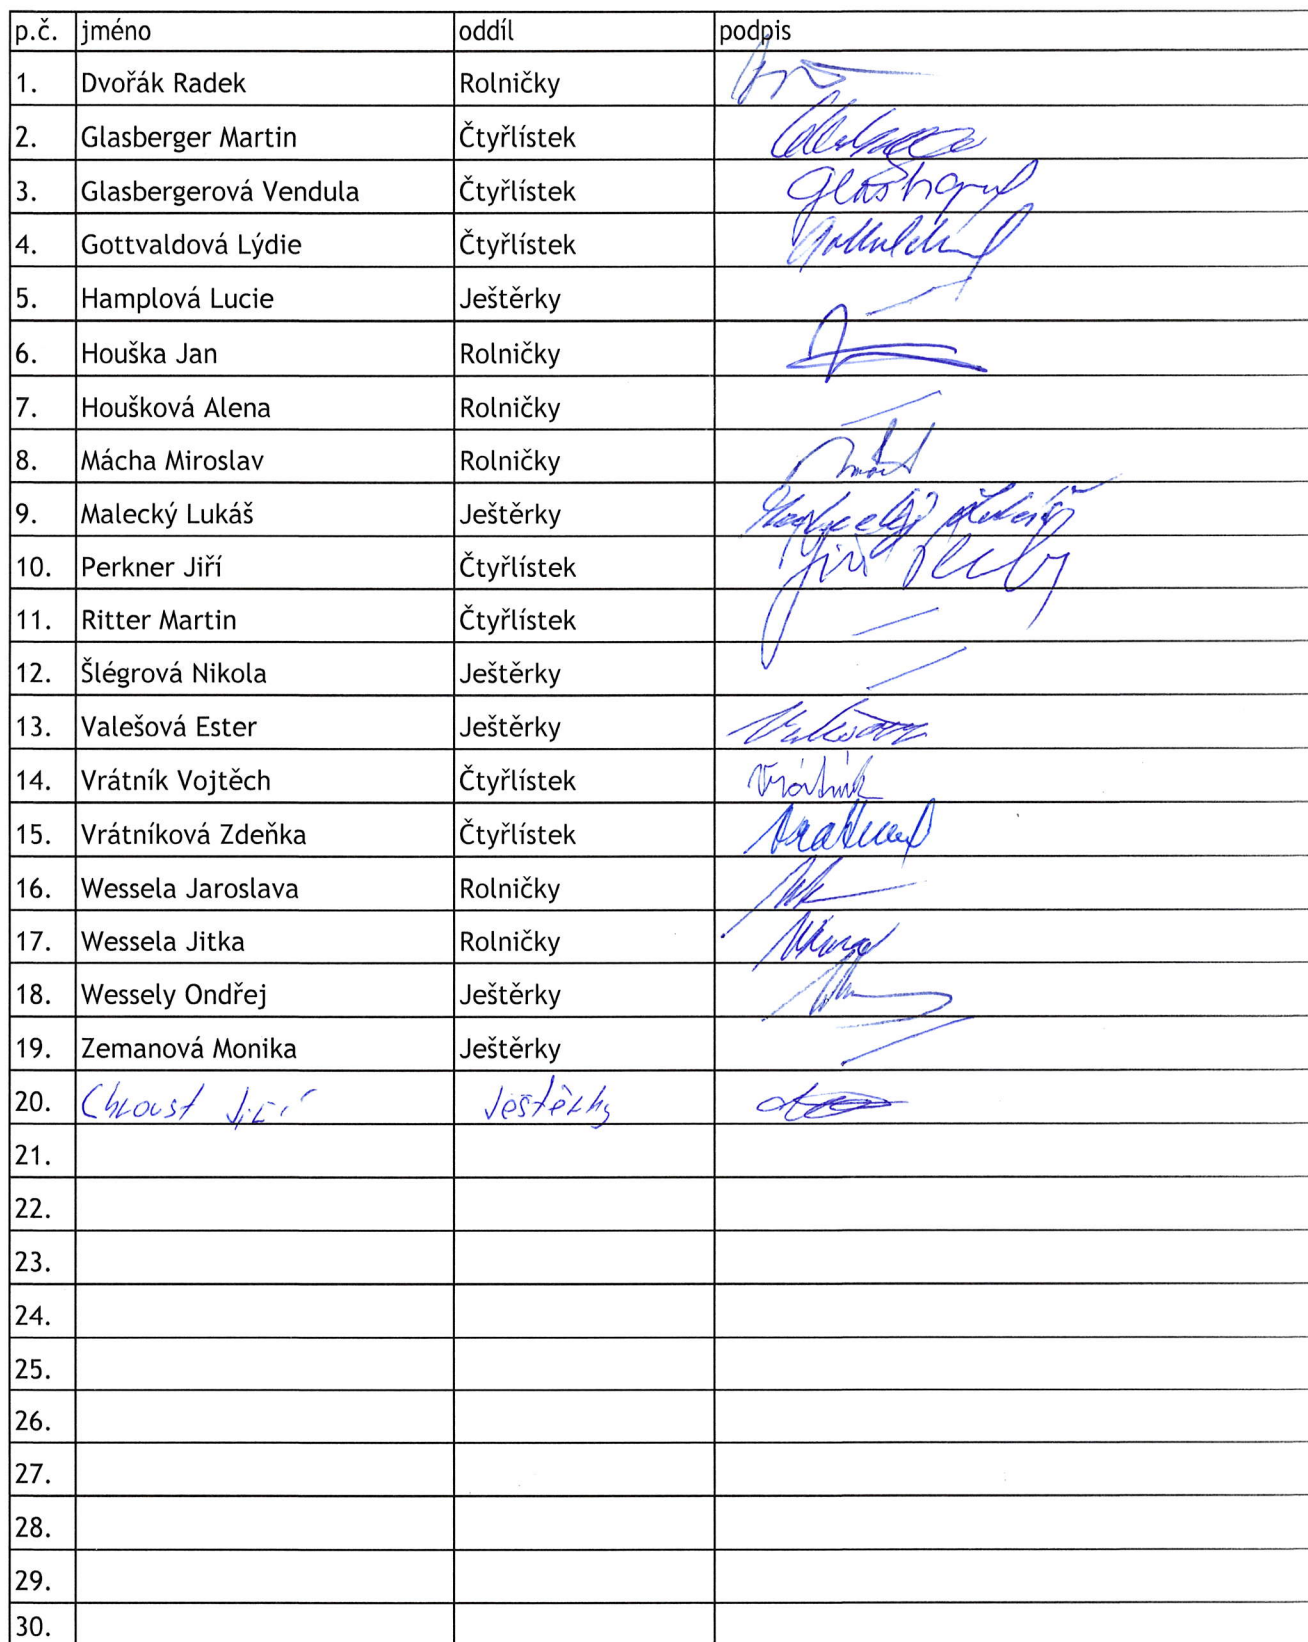 p.č. jméno oddíl podpis
1. Dvořák Radek Rolničky
2. Glasberger Martin Čtyřlístek
3. Glasbergerová Vendula Čtyřlístek
4. Gottvaldová Lýdie Čtyřlístek
5. Hamplová Lucie Ještěrky
6. Houška Jan Rolničky
7. Houšková Alena Rolničky
8. Mácha Miroslav Rolničky
9. Malecký Lukáš Ještěrky
10. Perkner Jiří Čtyřlístek Jiří
11. Ritter Martin Čtyřlístek
12. Šlégrová Nikola Ještěrky
13. Valešová Ester Ještěrky
14. Vrátník Vojtěch Čtyřlístek Vrátník
15. Vrátníková Zdeňka Čtyřlístek
16. Wessela Jaroslava Rolničky
17. Wessela Jitka Rolničky
18. Wessely Ondřej Ještěrky
19. Zemanová Monika Ještěrky
20. Chroust Jiří Ještěrky
21.
22.
23.
24.
25.
26.
27.
28.
29.
30.